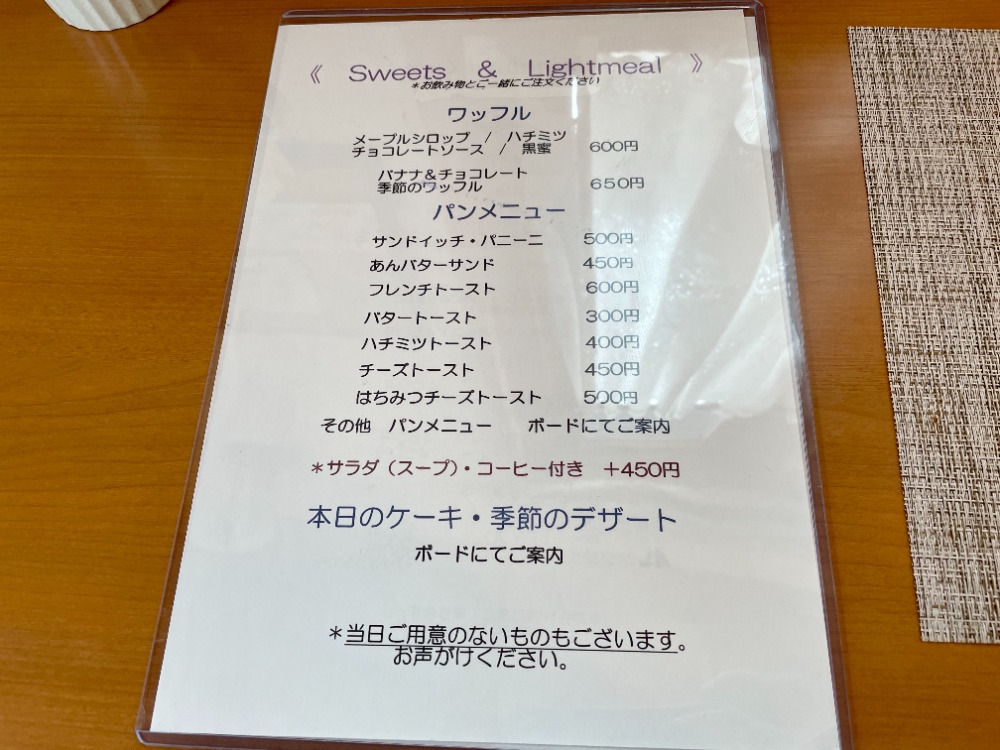 《 Sweets & Lightmeal 》
*お飲み物とご一緒にご注文ください
ワッフル
メープルシロップ / ハチミツ
チョコレートソース / 黒蜜 600円
バナナ&チョコレート
季節のワッフル 650円
パンメニュー
サンドイッチ・パニーニ 500円
あんバターサンド 450円
フレンチトースト 600円
バタートースト 300円
ハチミツトースト 400円
チーズトースト 450円
はちみつチーズトースト 500円
その他 パンメニュー ボードにてご案内
*サラダ(スープ)・コーヒー付き +450円
本日のケーキ・季節のデザート
ボードにてご案内
*当日ご用意のないものもございます。
お声がけください。